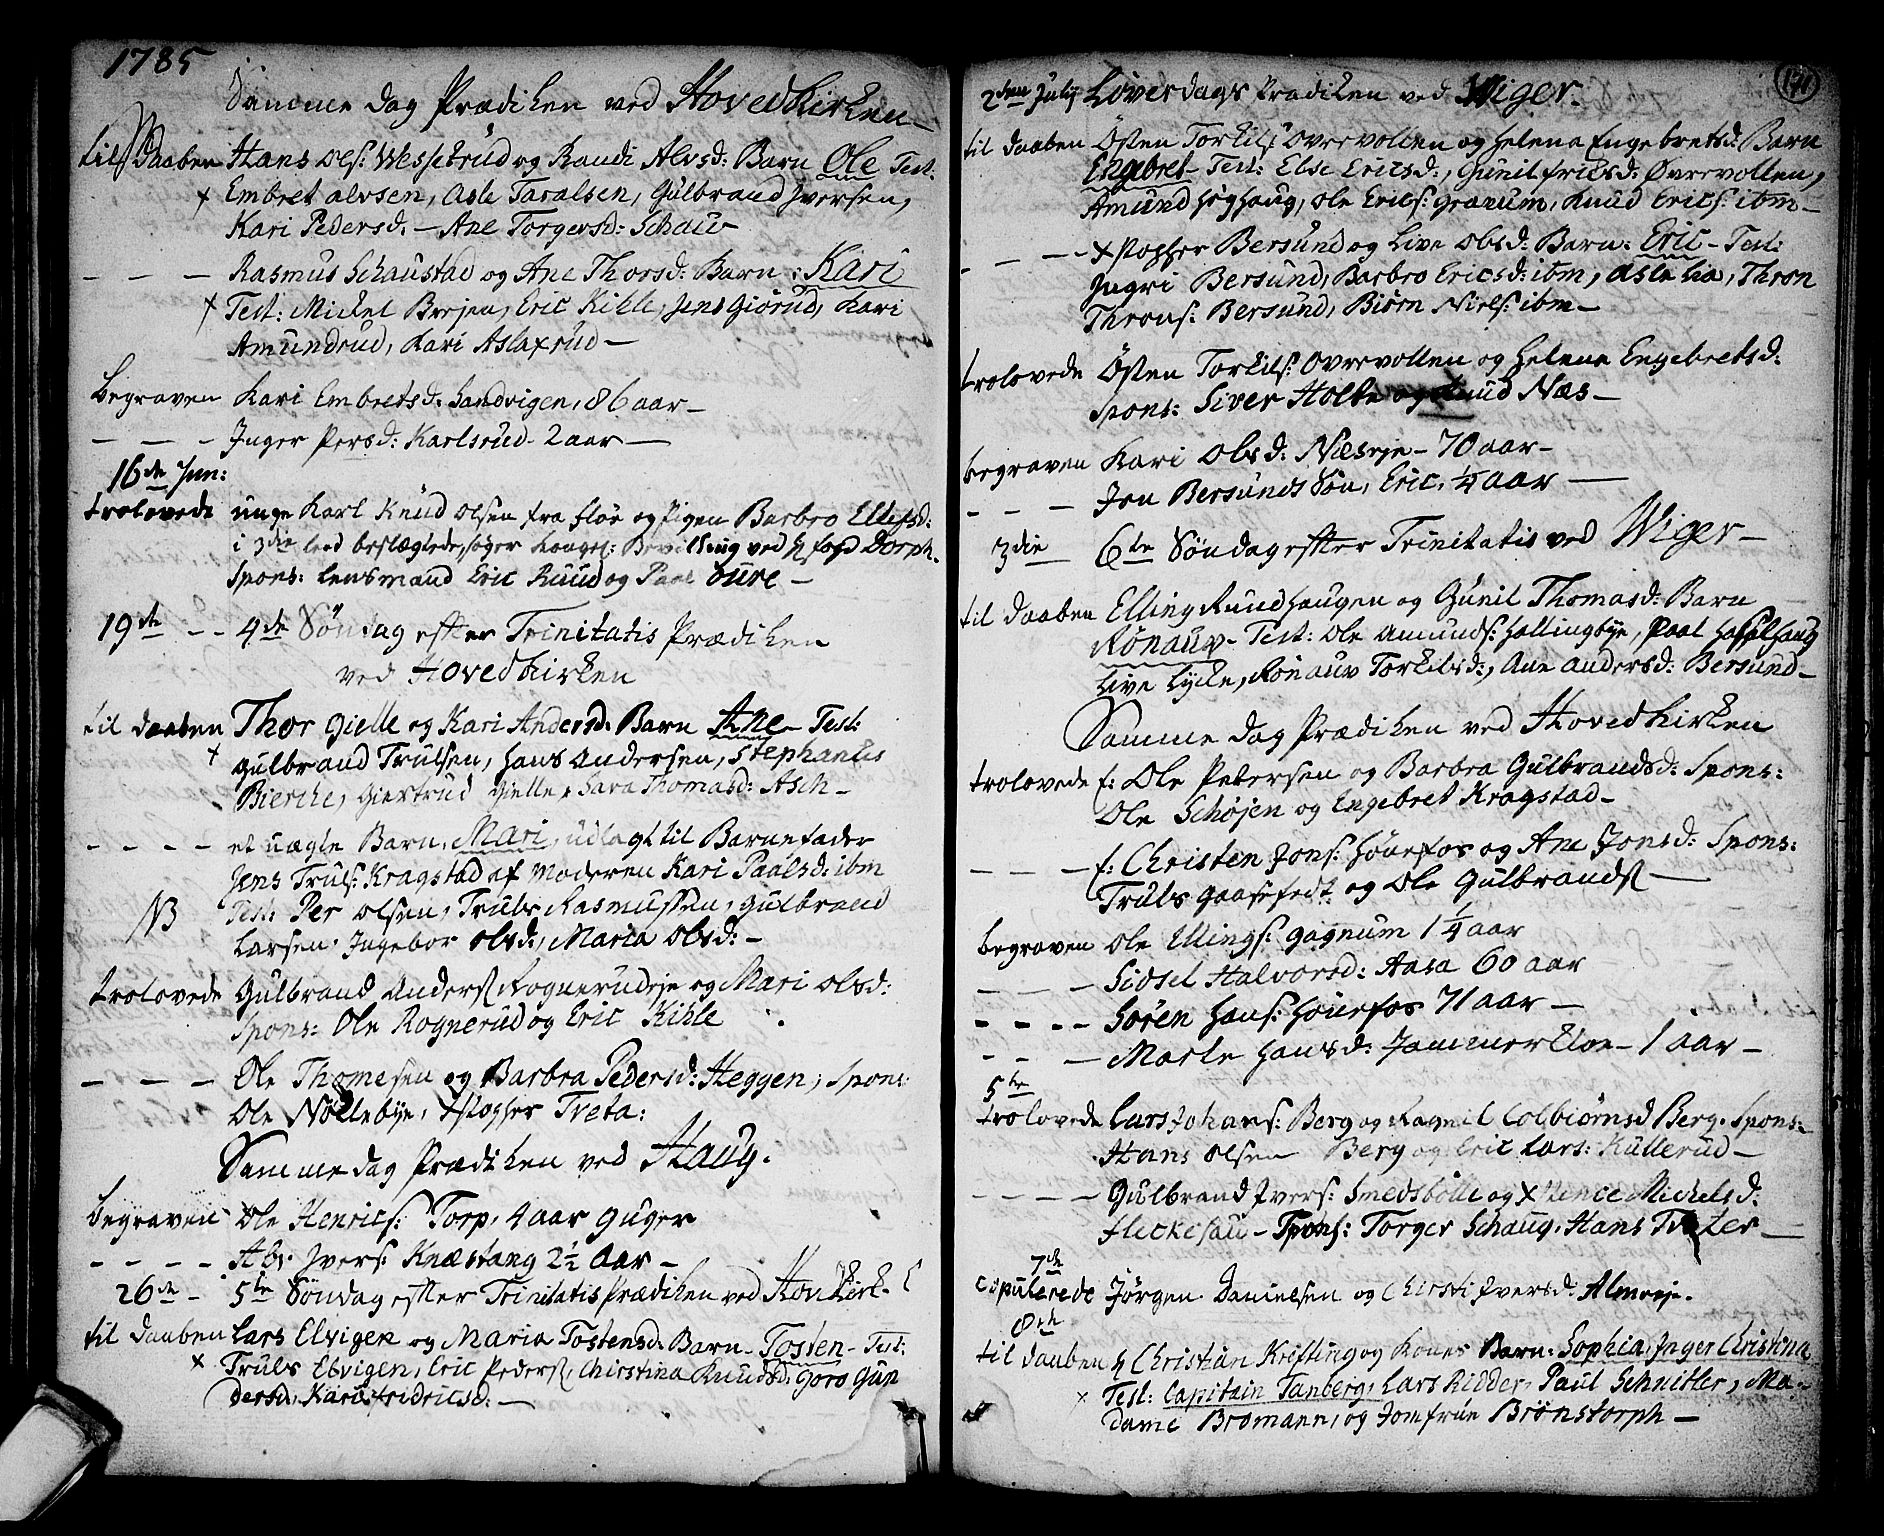 1785
Samme dag Prædiken ved Hovedkirken
til Daaben Hans Ols: Wessetrud og Randi Alvsd: Barn Ole Test:
+ Embret alvsen, Asle Taralsen, Gulbrand Iversen,
Kari Pedersd. - Ane Torgersd: Schaug
- - - Rasmus Schaustad og Ane Thorsd: Barn: Kari
+ Test: Mickel Breien, Eric Kihle, Jens Giørud, Kari
Amundrud, Kari Aslaxrud -
begraven Kari Embretsd. Sandvigen, 86 aar -
- - - Inger Persd: Karlsrud - 2 aar -
16de Jun:
trolovede unge Karl Knud Olsen fra Floe og Pigen Barbro Ellefsd:
i 3die leed beslægtede, søger Konges: Bevilling ved H fogd Dorph.
Spons: Lensmand Eric Ruud og Paal Oure -
19de - - 4de Søndag efter Trinitatis Prædiken
ved Hovedkirken
til daaben Thor Gielle og Kari Andersd: Barn Ane - Test:
+ Gulbrand Trulsen, Hans Andersen, Stephanus
Bierche, Giertrud Gielle, Sara Thomasd: Asch -
- - - - et uægte Barn, Mari, udlagt til Barnefader
Jens Truls: Kragstad af Moderen Kari Paalsd: ibm
NB Test: Per Olsen, Truls Rasmussen, Gulbrand
Larsen, Ingebor Olsd:, Maria Olsd: -
trolovede Gulbrand Anders: Rognerudeje og Mari Olsd:
Spons: Ole Rognerud og Eric Kihle
- - - Ole Thomesen og Barbra Pedersd: Heggen, Spons:
Ole Nøllebye, Xstopher Treta:
Samme dag Prædiken ved Haug.
begraven Ole Henrics: Torp, 4 aar Guger
- - - - Abr. Ivers: Knæstang 2 1/2 Aar -
26de - 5te Søndag efter Trinitatis Prædiken ved Hovkirk-
til daaben Lars Elvigen og Maria Tostensd: Barn - Tosten - Test:
x Truls Elvigen, Eric Peders:, Chirstina Knudsd: Goro Gun
dersd, Kari fridricsd: -
171
2den July Løverdags Prædiken ved Wiger.
til daaben Østen Torkils: Ovrevollen og Helena Engebretsd: Barn
Engebret - Test: Else Ericsd:, Gunil fricsd: Øvrevollen,
Amund Høghaug, Ole Erics: Granum, Knud Erics: ibm -
- - - - Xstopher Bersund og Live Olsd: Barn: Eric - Test:
Ingri Bersund, Barbro Ericsd: ibm, Asle Lia, Thron
Throns: Bersund, Biørn Niels: ibm -
trolovede Østen Torkils: Ovrevollen og Helena Engebretsd:
Spons: Siver Holte og Knud Næs -
begraven Kari Olsd: Næseje - 70 aar -
- - - Jon Bersunds Søn, Eric, 1/4 aar -
3die - 6te Søndag efter Trinitatis ved Wiger -
til daaben Elling Rundhaugen og Gunil Thomasd: Barn
Rønauv - Test: Ole Amunds: Hallingbye, Paal Hasselhaug
Live Lycke, Rønauv Torkilsd:, Ane Andersd: Bersund -
Samme dag Prædiken ved Hovedkirken
trolovede f: Ole Petersen og Barbra Gulbrandsd: Spons:
Ole Schøjen og Engebret Kragstad -
- - - f: Christen Jons: Hønefos og Ane Jonsd: Spons:
Truls Gaasefedt og Ole Gulbrands: -
begraven Ole Ellings: Gagnum 1 1/4 aar
- - - Sidsel Halvorsd: Aasa 60 aar
- - - - Søren Hans: Hønefos 71 aar -
- - - Marte Hansd: Jammerkloe - 1 aar -
5te
trolovede Lars Johans: Berg og Ragnil Colbiørnsd Berg. Spons:
Hans Olsen Berg og Eric Lars: Kullerud -
- - - - Gulbrand Ivers: Smedsbølle og Xstence Michelsd:
Fleckesau - Spons: Torger Schaug, Hans Trøter -
7de
copulerede Jørgen Danielsen og Chirsti Iversd: Almeeje.
8de
til daaben H Christian Krifting og Kones Barn: Sophia Inger Christina
x Test: Capitain Tanberg, Lars Ridder, Paul Schnitler, Ma-
dame Bromann, og Jomfrue Brønstorph -